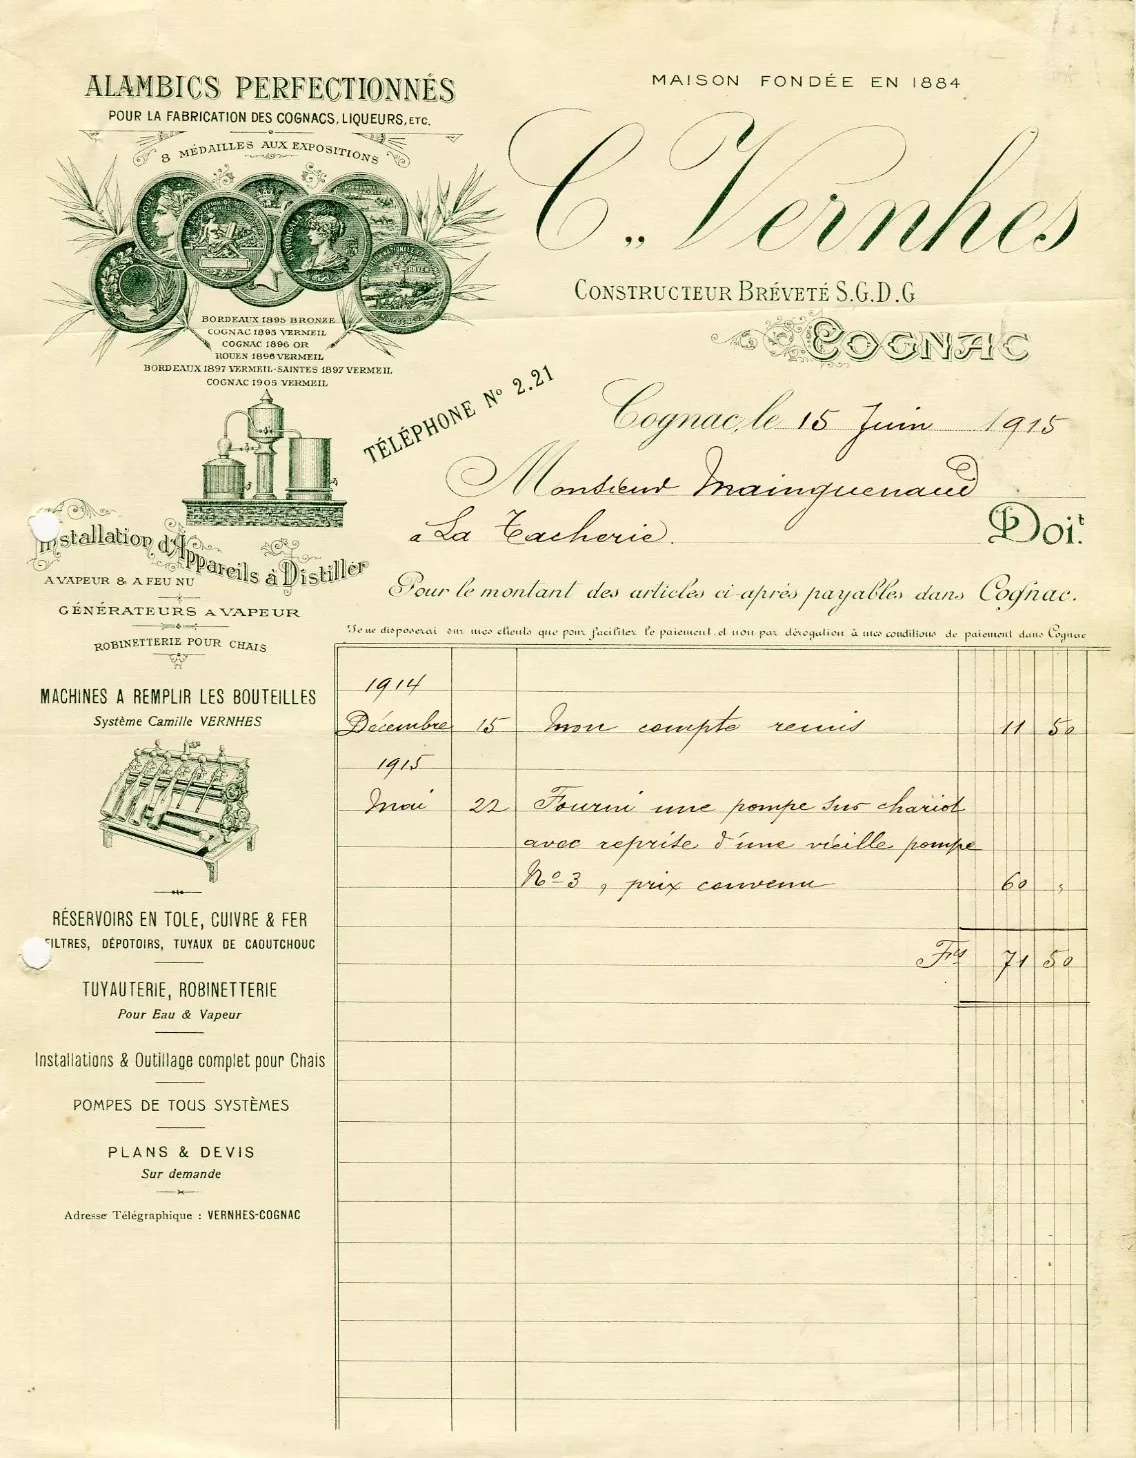 ALAMBICS PERFECTIONNÉS
POUR LA FABRICATION DES COGNACS, LIQUEURS, ETC.
8 MÉDAILLES AUX EXPOSITIONS
BORDEAUX 1895 BRONZE
COGNAC 1895 VERMEIL
COGNAC 1896 OR
ROUEN 1896 VERMEIL
BORDEAUX 1897 VERMEIL-SAINTES 1897 VERMEIL
COGNAC 1905 VERMEIL
MAISON FONDÉE EN 1884
C. Vernhes
CONSTRUCTEUR BRÉVETÉ S.G.D.G
COGNAC
TÉLÉPHONE No 2.21
Cognac, le 15 Juin 1915
Monsieur Mainguenaud
a La Tacherie. Doit.
Pour le montant des articles ci-après payables dans Cognac.
Je ne disposerai sur mes clients que pour faciliter le paiement et non par dérogation à mes conditions de paiement dans Cognac
Installation d'Appareils à Distiller
A VAPEUR & A FEU NU
GÉNÉRATEURS A VAPEUR
ROBINETTERIE POUR CHAIS
MACHINES A REMPLIR LES BOUTEILLES
Système Camille VERNHES
RÉSERVOIRS EN TOLE, CUIVRE & FER
FILTRES, DÉPOTOIRS, TUYAUX DE CAOUTCHOUC
TUYAUTERIE, ROBINETTERIE
Pour Eau & Vapeur
Installations & Outillage complet pour Chais
POMPES DE TOUS SYSTÈMES
PLANS & DEVIS
Sur demande
Adresse Télégraphique : VERNHES-COGNAC
1914
Décembre 15 Mon compte remis 11 50
1915
Mai 22 Fourni une pompe sur chariot
avec reprise d'une vieille pompe
No 3, prix convenu 60 "
Frs 71 50